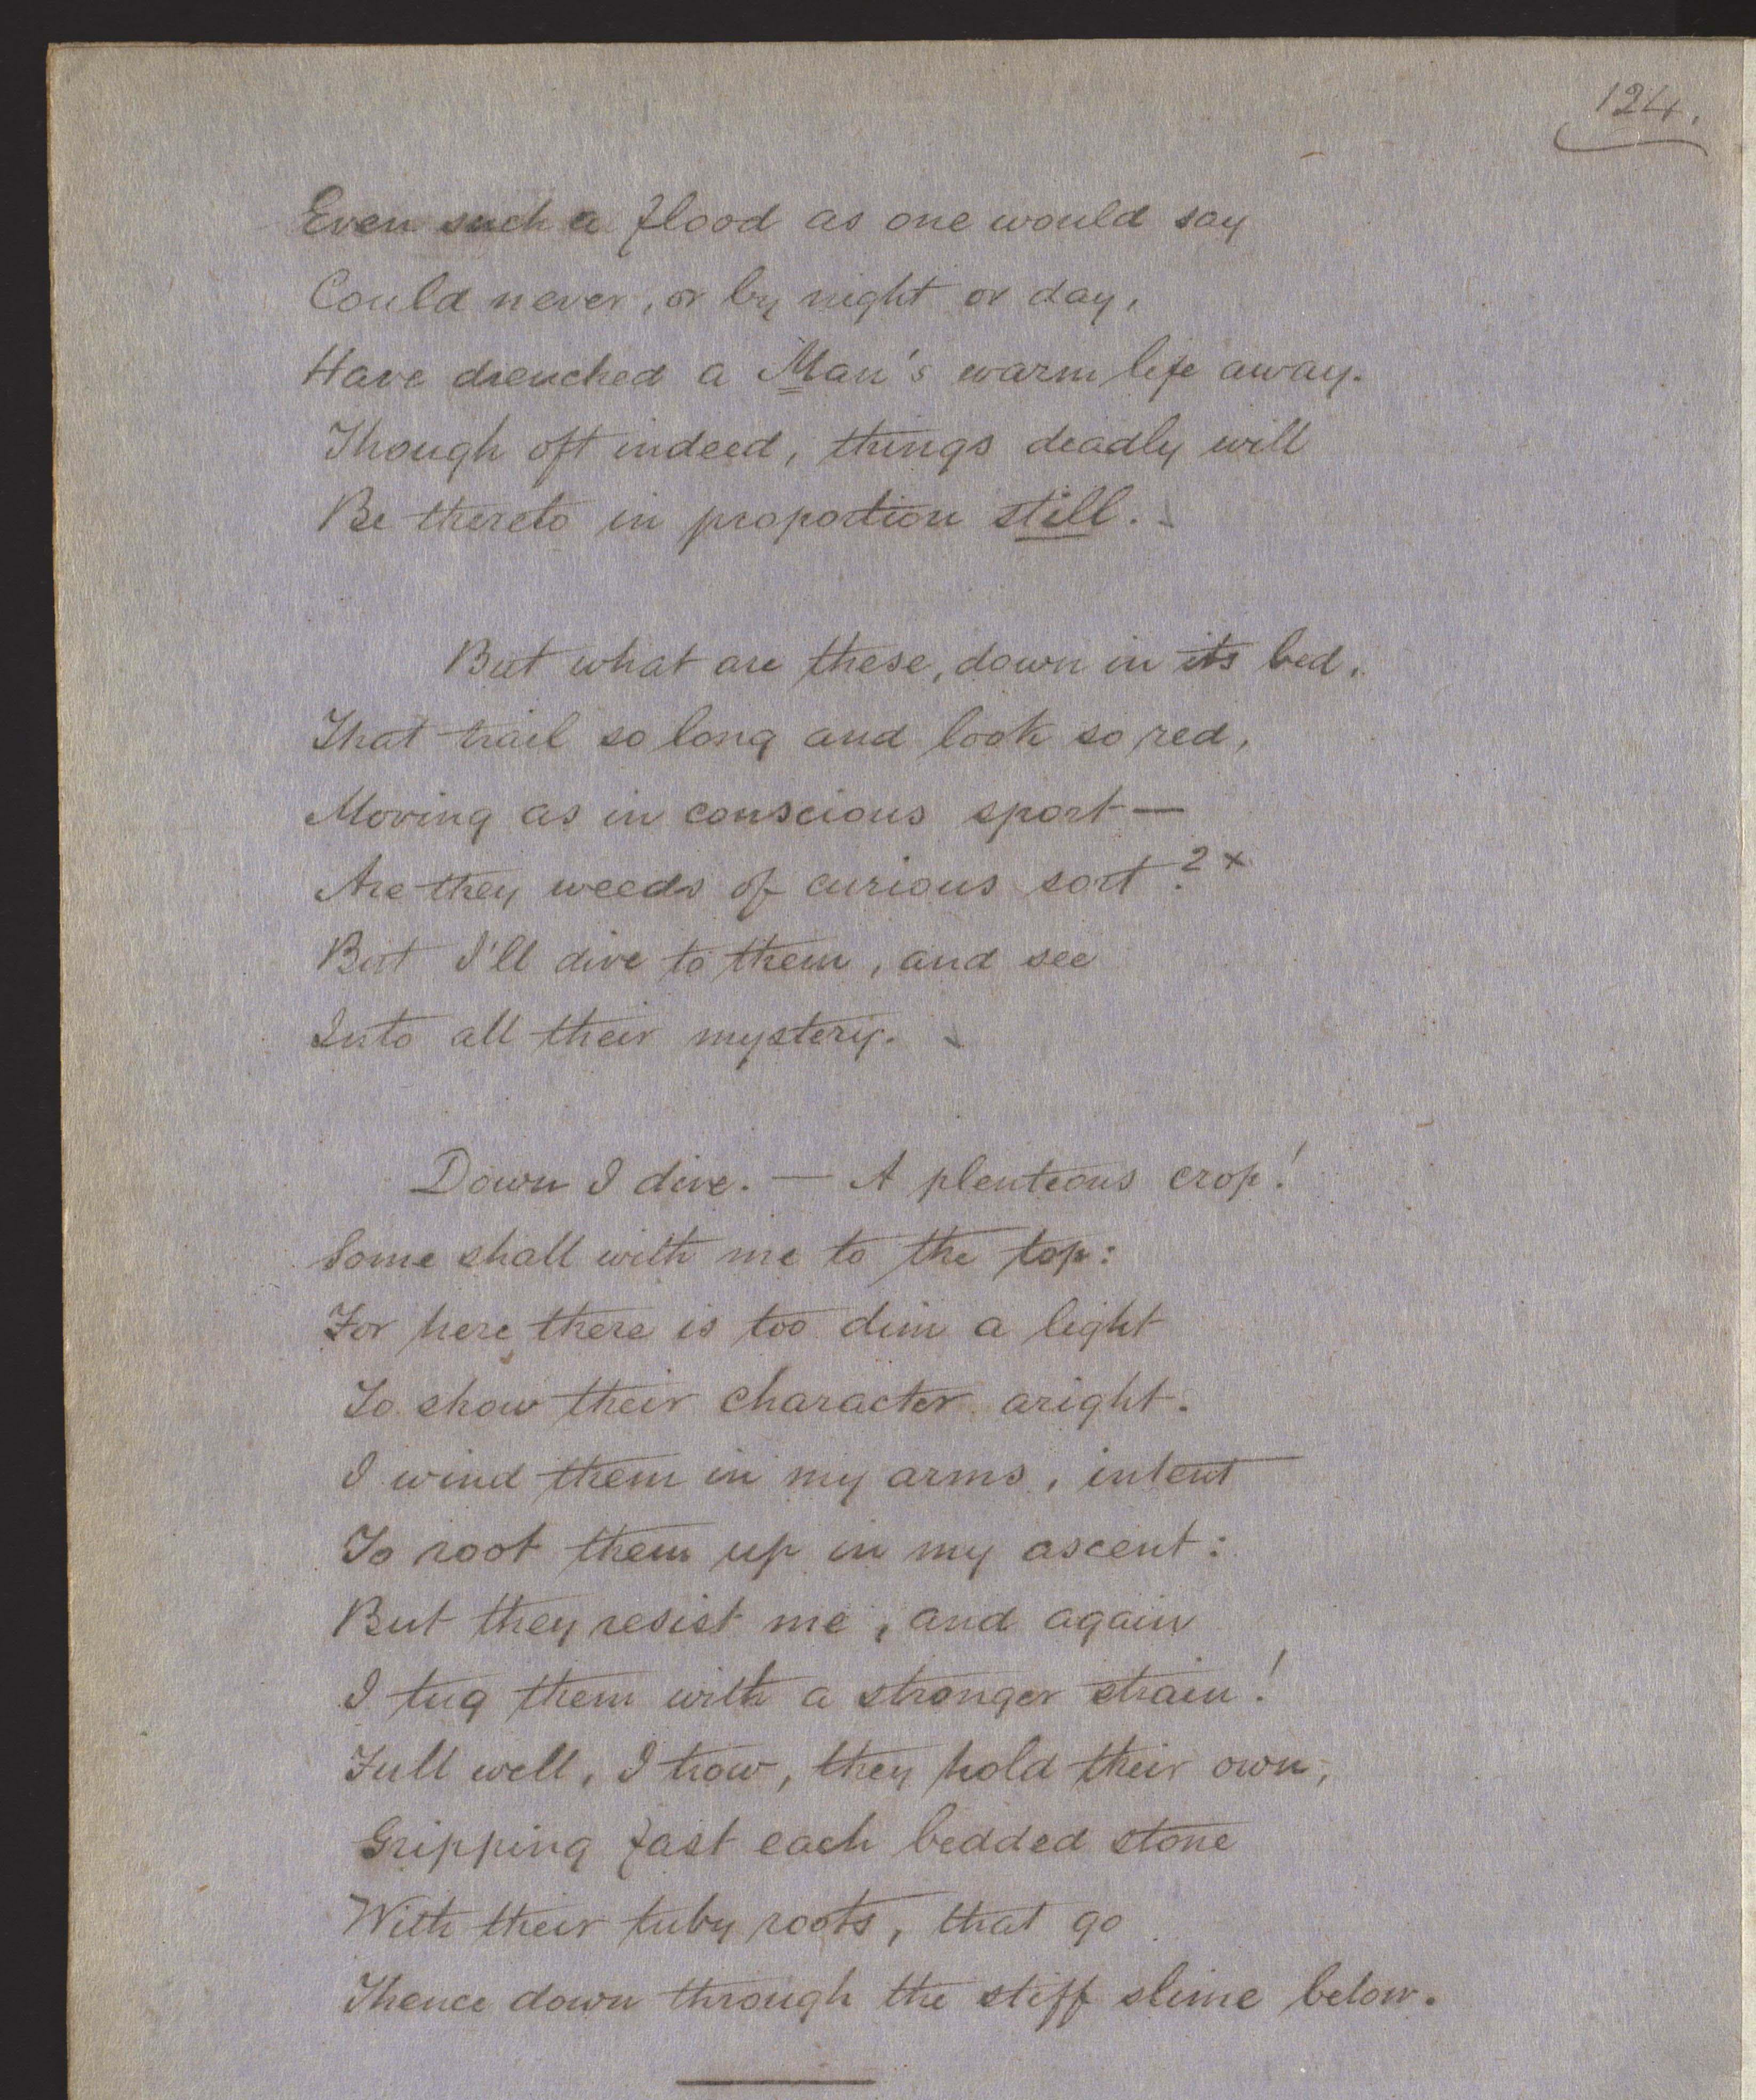 124.
Even such a flood as one would say
Could never, or by night or day,
Have drenched a Man's warm life away.
Though oft indeed, things deadly will
Be thereto in proportion still.
But what are these, down in its bed,
That trail so long and look so red,
Moving as in conscious sport—
Are they weeds of curious sort?x
But I'll dive to them, and see
Into all their mystery.
Down I dive. — A plenteous crop!
Some shall with me to the top:
For here there is too dim a light
To show their character aright.
I wind them in my arms, intent
To root them up in my ascent:
But they resist me, and again
I tug them with a stronger strain!
Full well, I trow, they hold their own,
Gripping fast each bedded stone
With their tuby roots, that go
Thence down through the stiff slime below.